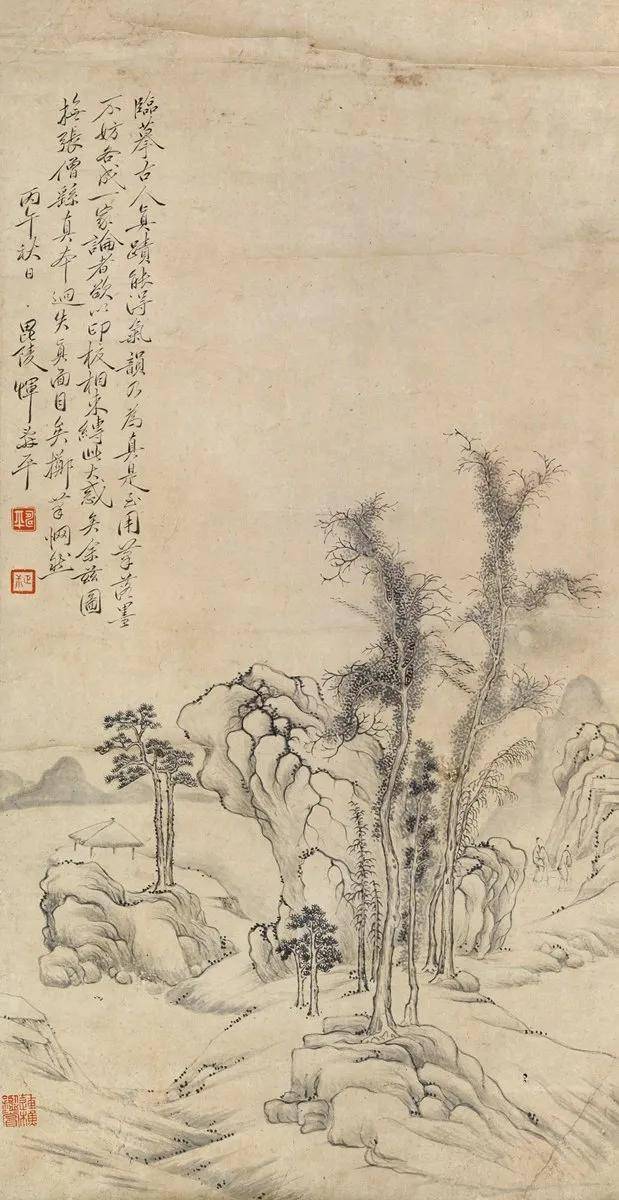 臨摹古人真蹟能得氣韻乃為真是至用筆落墨
不妨各成一家論者欲以印板相束縛此大惑矣余茲圖
撫張僧繇真本迥失真面目矣擲筆惘然
丙午秋日 毘陵惲壽平
壽平
正叔